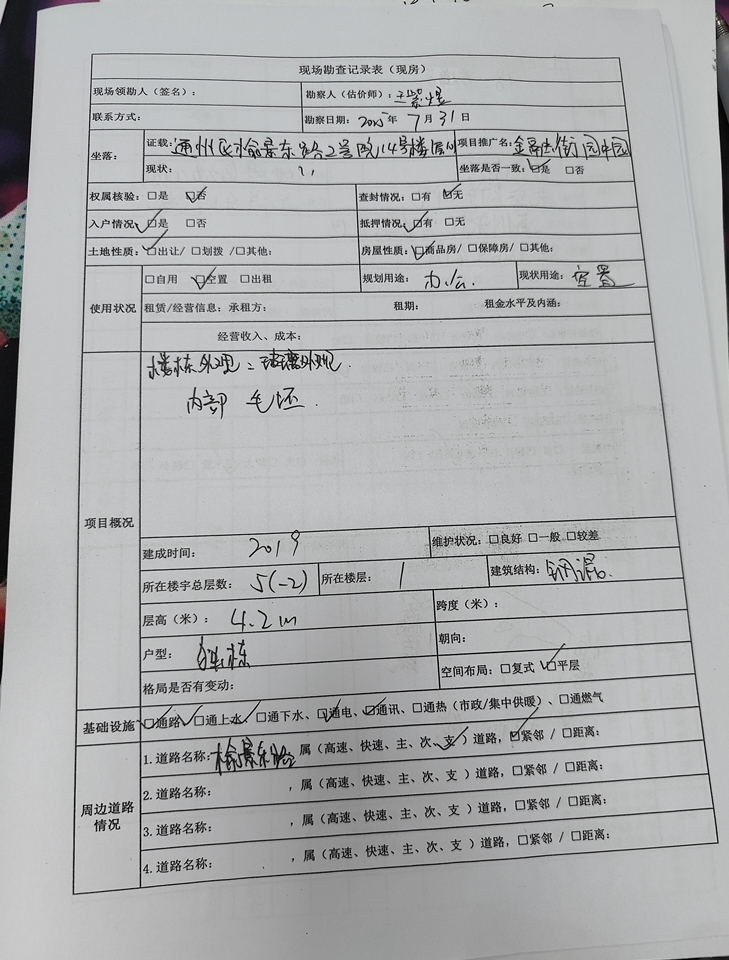 现场勘查记录表（现房）
现场领勘人（签名）： 勘察人（估价师）：
联系方式： 勘察日期：2025年 7 月 31 日
坐落： 证载：通州区榆景东路2号院14号楼 项目推广名：金融街园中园
现状： 坐落是否一致：☑是 □否
权属核验：□是 ☑否 查封情况：□有 ☑无
入户情况：☑是 □否 抵押情况：☑有 □无
土地性质：☑出让/ □划拨 /□其他： 房屋性质：☑商品房/ □保障房/ □其他：
使用状况 □自用 ☑空置 □出租 规划用途：办公. 现状用途：空置
租赁/经营信息：承租方： 租期： 租金水平及内涵：
经营收入、成本：
项目概况
楼栋外观：玻璃外观.
内部 毛坯.
建成时间：2019 维护状况：□良好 □一般 □较差
所在楼宇总层数：5(-2) 所在楼层：1 建筑结构：钢混.
层高（米）：4.2m 跨度（米）：
户型：独栋 朝向：
格局是否有变动： 空间布局：□复式 ☑平层
基础设施 ☑通路、☑通上水、☑通下水、☑通电、☑通讯、□通热（市政/集中供暖）、□通燃气
周边道路情况
1.道路名称：榆景东路 属（高速、快速、主、次、支✓）道路，☑紧邻 / □距离：
2.道路名称： ，属（高速、快速、主、次、支 ）道路，□紧邻 / □距离：
3.道路名称： ，属（高速、快速、主、次、支 ）道路，□紧邻 / □距离：
4.道路名称： ，属（高速、快速、主、次、支 ）道路，□紧邻 / □距离：